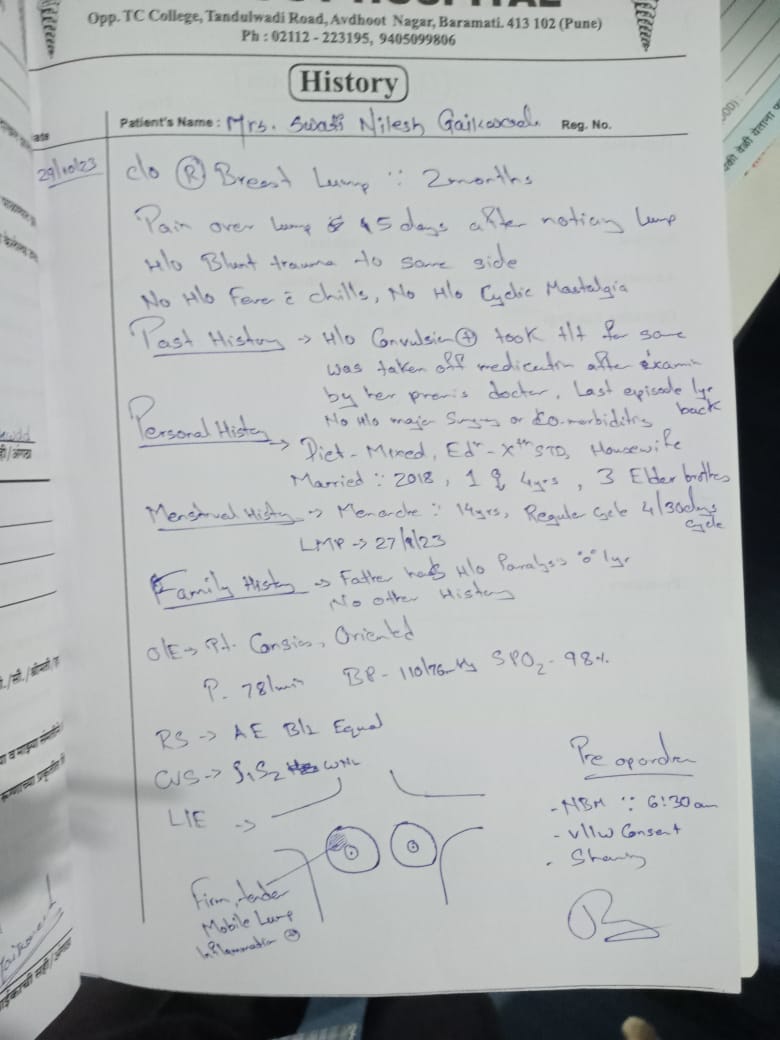 HOSPITAL
Opp. TC College, Tandulwadi Road, Avdhoot Nagar, Baramati. 413 102 (Pune)
Ph : 02112 - 223195, 9405099806
History
Patient's Name : Mrs. Swati Nilesh Reg. No.
29/10/23
c/o (R) Breast Lump :: 2 months
Pain over lump 15 days after noticing lump
H/o Blunt trauma to same side
No H/o Fever c̄ chills, No H/o Cyclic Mastalgia
Past History → H/o Convulsion (+) took t/t for same
was taken off medication after
by her doctor. Last episode 1yr back
No H/o major Surgery or Co-morbidities
Personal History → Diet - Mixed, Edn - Xth STD, Housewife
Married :: 2018, 1 4yrs, 3 Elder brothers
Menstrual History → Menarche :: 14yrs, Regular Cycle 4/30days cycle
LMP → 27/ /23
Family History → Father H/o 1yr
No other History
O/E → Pt. Conscious, Oriented
P - 78/min BP - 110/76mmHg SPO2 - 98%
RS → AE B/L Equal
CVS → S1S2 WNL
L/E →
Firm, tender
Mobile Lump
Inflammation (+)
Pre op order
- NBM :: 6:30am
- V/I/W Consent
- Shaving